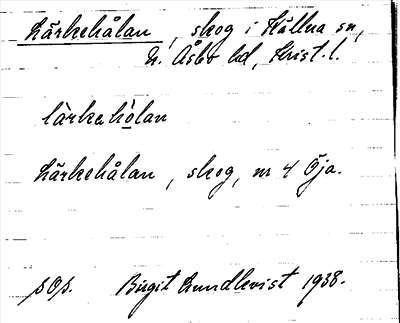 Lärkehålan, skog i Hållna sn,
N. Åsbo hd, Krist. l.
lärkehòlan
Lärkehålan, skog, nr 4 Öja.
sOs. Birgit Lundkvist 1938.